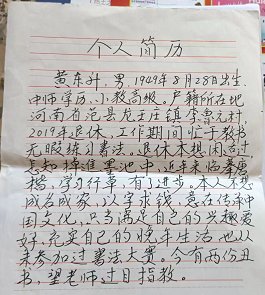 个人简历
黄东升，男，1949年8月28日出生，
中师学历，小教高级。户籍所在地
河南省范县龙王庄镇李曹元村，
2019年退休，工作期间忙于教书
无暇练习书法。退休本想闲适过，
怎知掉进墨池中，近年来临摹唐
楷，学习行草，有了进步。本人不想
成名成家，以字求钱，意在传承中
国文化，只当满足自己的兴趣爱
好，充实自己的晚年生活，也从
未参加过书法大赛。今有两份丑
书，望老师过目指教。